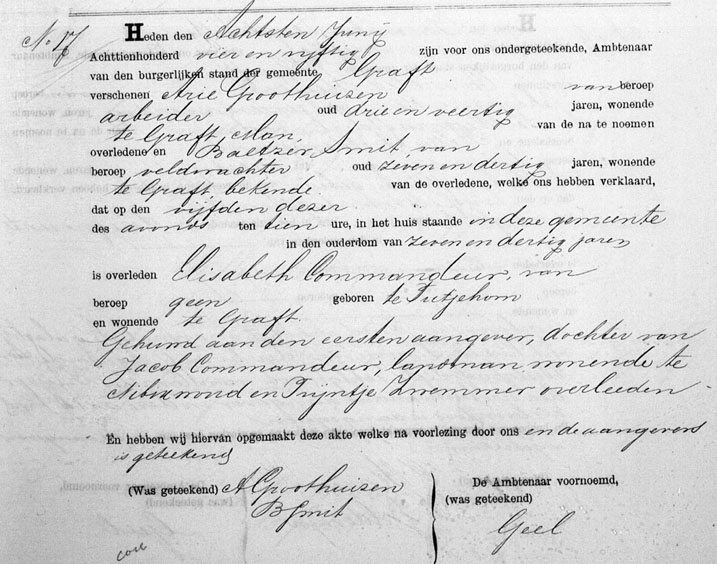 No. 17 Heden den Achtsten Junij
Achttienhonderd vier en vyftig zijn voor ons ondergeteekende, Ambtenaar
van den burgerlijken stand der gemeente Graft
verschenen Arie Groothuizen van beroep
arbeider oud drie en veertig jaren, wonende
te Graft, Man, van de na te noemen
overledene en Baltzer Smit, van
beroep veldwachter oud zeven en dertig jaren, wonende
te Graft bekende van de overledene, welke ons hebben verklaard,
dat op den vijfden dezer
des avonds ten tien ure, in het huis staande in deze gemeente
in den ouderdom van zeven en dertig jaren
is overleden Elisabeth Commandeur, van
beroep geen geboren te Tutjehorn
en wonende te Graft.
Gehuwd aan den eersten aangever, dochter van
Jacob Commandeur, landman wonende te
Nibixwoud en Trijntje Zwemmer overleeden
En hebben wij hiervan opgemaakt deze akte welke na voorlezing door ons en de aangevers
is geteekend
(Was geteekend) A Groothuizen
B Smit
De Ambtenaar voornoemd,
(was geteekend)
Geel